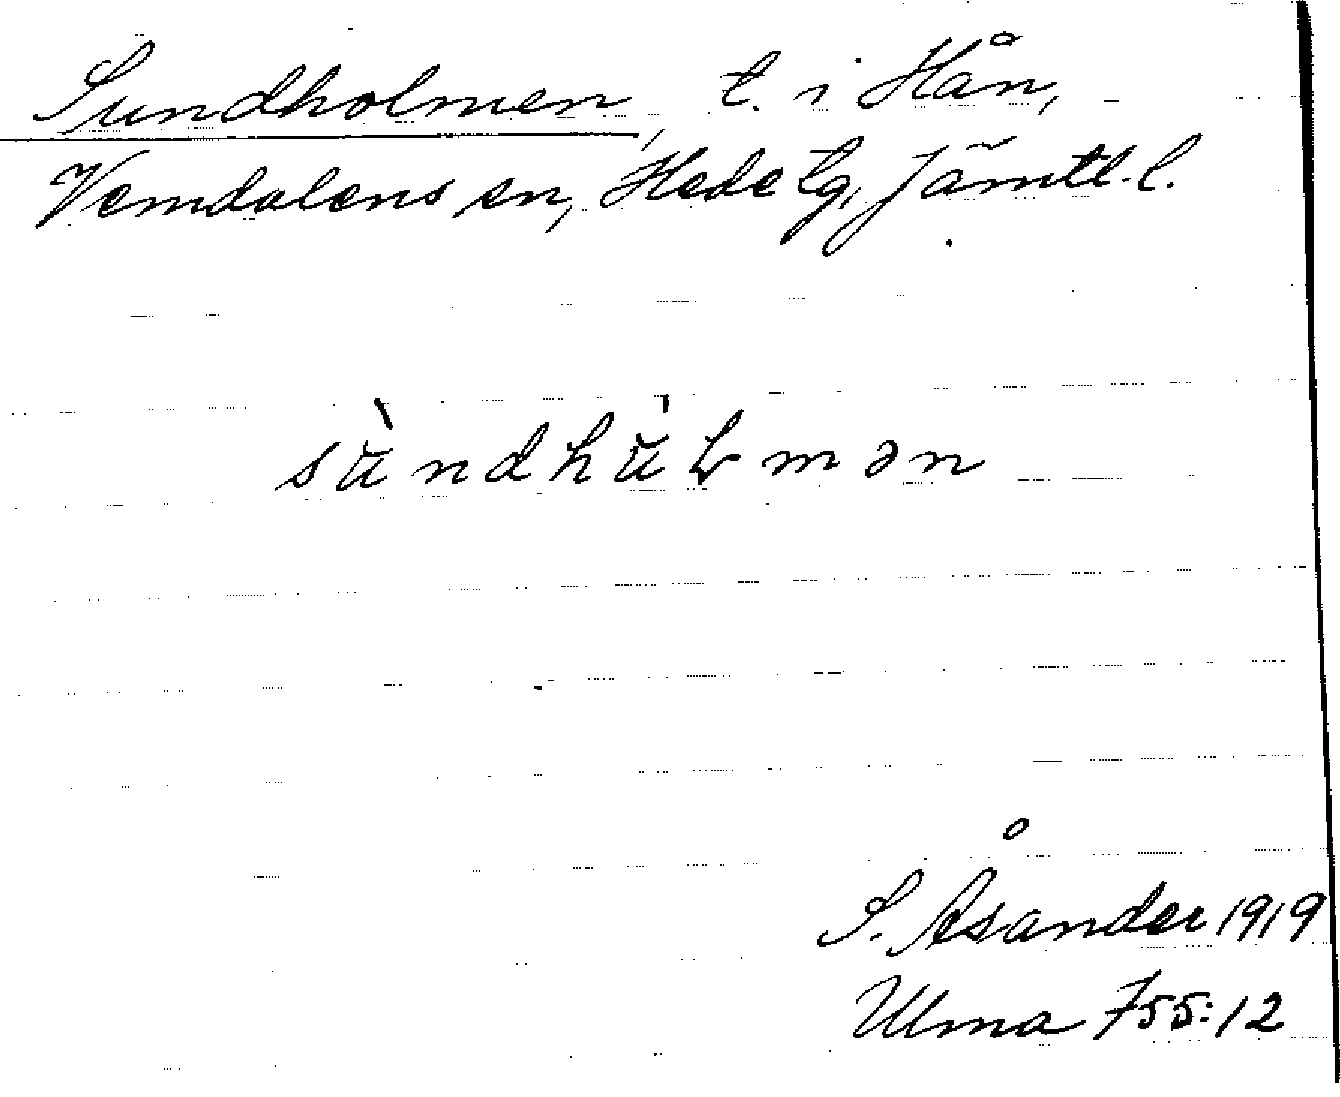 Sundholmen, t. i Hån,
Vemdalens sn, Hede tg, Jämtl. l.
S. Åsander 1919
Ulma 755:12